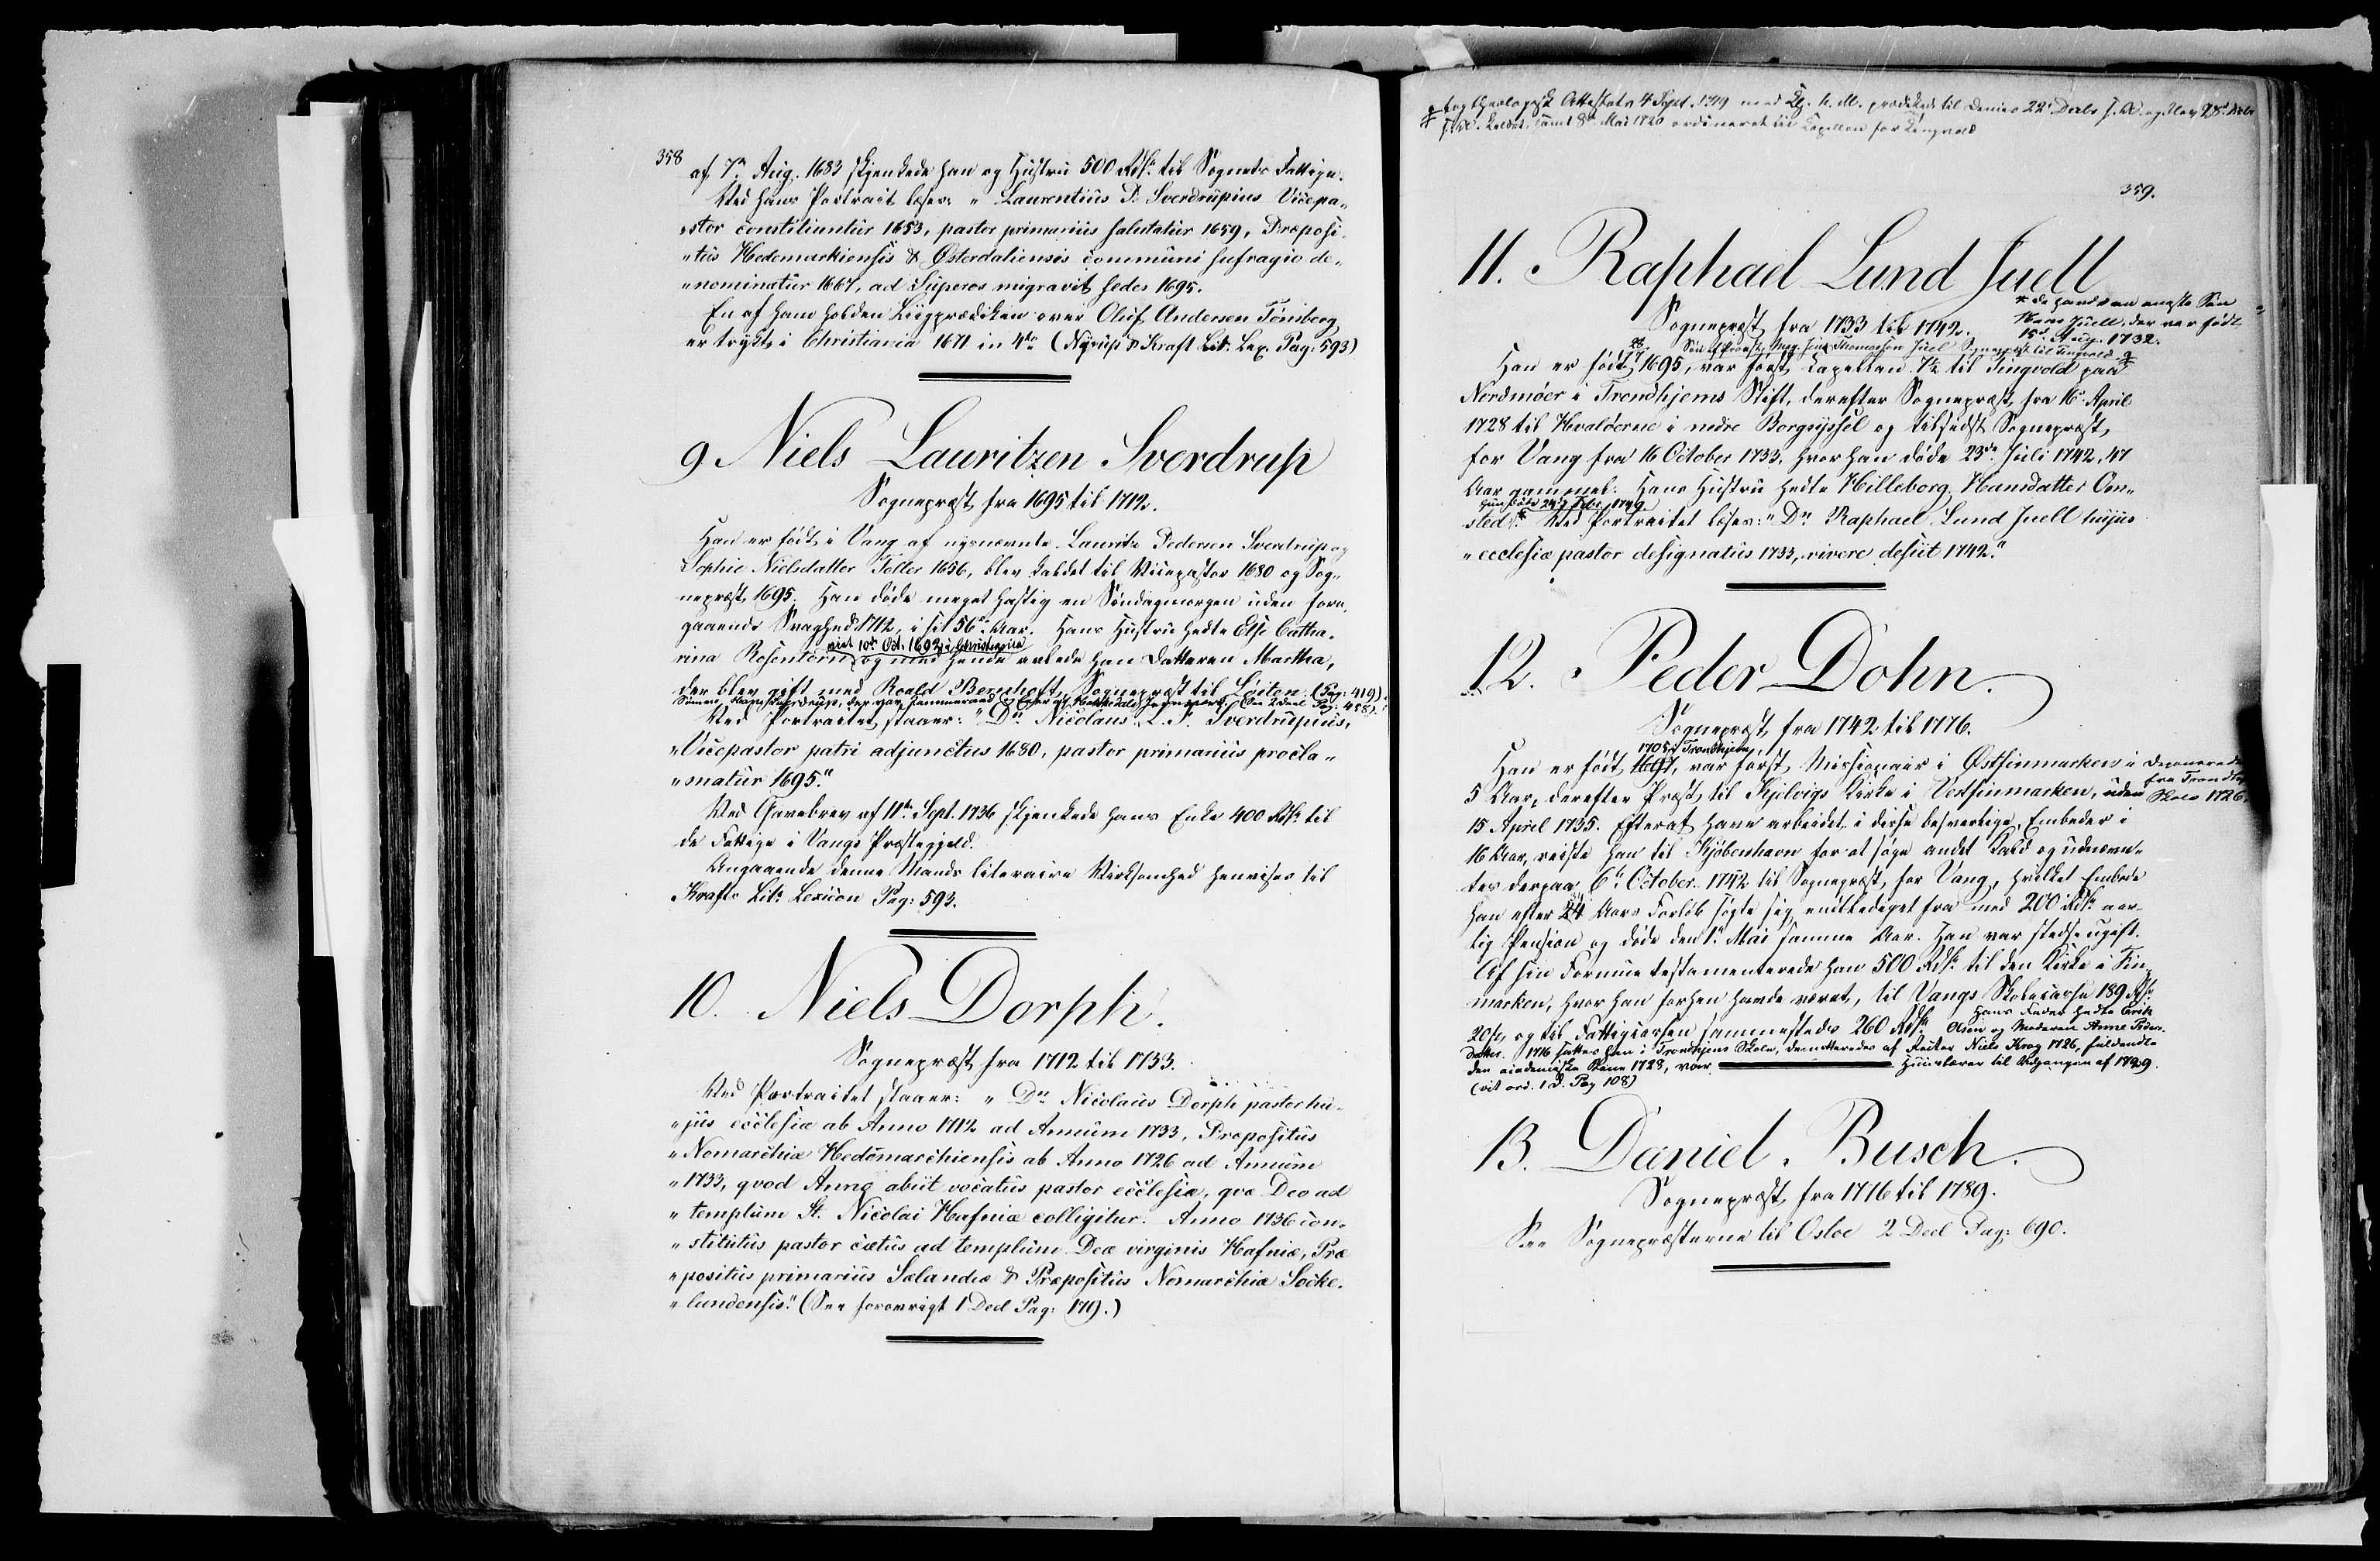 358
af 7de Aug. 1683 skjenkede han og Hustru 500 Rdlr til Sognets Fattige.
Ved hans Portrait læses: „Laurentius P. Sverdrupius Vicepa„
„stor constituuntur 1653, pastor primarius salutatur 1659, Præposi„
„tus Hedemarkiensis & Østerdaliensis communi sufragio de„
„nominatur 1667, ad Superos migravit sedes 1695.
En af ham holden Liigprædiken over Oluf Andersen Tønsberg
er trykt i Christiania 1671 in 4to (Nyrup & Kraft Lit. Lex. Pag: 593)
9 Niels Lauritzen Sverdrup
Sognepræst fra 1695 til 1712.
Han er født i Vang af nysnævnte Lauritz Pedersen Sverdrup og
Sophie Nielsdatter Tolter 1656, blev kaldet til Vicepastor 1680 og Sog„
nepræst 1695. Han døde meget hastig en Søndagmorgen uden fore„
gaaende Svaghed 1712, i sit 56de Aar. Hans Hustru hedte Else Catha„
viet 10de Oct. 1692 i Christiania
rina Rosentorn og med hende avlede han Datteren Martha,
der blev gift med Roald Bernhoft, Sognepræst til Løiten (Pag: 419).
(See 2 Deel Pag: 458).
Ved Portraitet staaer: „Dn Nicolaus L. F. Sverdrupius,
„Vicepastor patri adjunctus 1680, pastor primarius procla„
„matur 1695."
Ved Gavebrev af 11te Sept. 1736 skjenkede hans Enke 400 Rdlr til
de Fattige i Vangs Præstegjeld.
Angaaende denne Mands literaire Virksomhed henvises til
Krafts Litr Lexicon Pag: 593.
10. Niels Dorph.
Sognepræst fra 1712 til 1733.
Ved Portraitet staaer: „Dn Nicolaus Dorph pastor hu„
„jus ecclesiæ ab Anno 1712 ad Annum 1733, Præpositus
„Nomarchiæ Hedemarchiensis ab Anno 1726 ad Annum
„1733, qvod Anno abiit vocatus pastor ecclesiæ, qvæ Deo ad
„templum St. Nicolai Hafniæ colligitur. Anno 1736 con„
„stitutus pastor cætus ad templum Deæ virginis Hafniæ, Præ
„positus primarius Sælandiæ & Præpositus Nomarchiæ Socke„
„lundensis." (See forøvrigt 1 Deel Pag: 179.)
tog theologisk Attestats 4 Sept. 1719 med
samt 8de Mai 1720 ordineret til Capellan for Tingvold
359.
11. Raphael Lund Juell
Sognepræst fra 1733 til 1742.
* de havde en eneste Søn
Hans Juell, der var født
15de Aug. 1732.
Søn af Provst, Mag. Jens Thomassen Juel Sognepræst til Tingvold
Han er født 1695, var først Capellan til Tingvold paa
Nordmøer i Trondhjems Stift, derefter Sognepræst fra 16de April
1728 til Hvaløerne i nedre Borgesyssel og tilsidst Sognepræst
for Vang fra 16 October 1733, hvor han døde 23de Juli 1742, 47
Aar gammel. Hans Hustru hedte Hilleborg Hansdatter Om„
hun døde 24de Febr. 1749.
sted.* Ved Portraitet læses: „Dn Raphael Lund Juell hujus
„ecclesiæ pastor designatus 1733, vivere desiit 1742."
12. Peder Dohn.
Sognepræst fra 1742 til 1776.
1705 i Trondhjem,
Han er født 1697, var først Missionair i Østfinmarken i
5 Aar, derefter Præst til Kjelvigs Kirke i Vestfinmarken, uden
dimitterede
fra Trondhj.
Skole 1726.
15 April 1735. Efter at have arbeidet i disse besværlige Embeder i
16 Aar, reiste han til Kjøbenhavn for at søge andet Kald og udnævn„
tes derpaa 6te October 1742 til Sognepræst for Vang, hvilket Embede
han efter 34 Aars Forløb søgte sig entlediget fra med 200 Rdlr aar„
lig Pension og døde den 1ste Mai samme Aar. Han var stedse ugift.
Af sin Formue testamenterede han 500 Rdlr til den Kirke i Fin„
marken, hvor han forhen havde været, til Vangs Skolecasse 189 Rdlr
20 s, og til Fattigcassen sammesteds 260 Rdlr
Hans Fader hedte Erik
Olsen og Moderen Anne Peders
datter. 1716 sattes han i Trondhjems Skole, demitteredes af Rector Niels Krog 1726, fuldendte
den academiske Bane 1728, var Huuslærer til Udgangen af 1729.
(vit ord. 1 D. Pag 108)
13. Daniel Busch.
Sognepræst fra 1776 til 1789.
See Sognepræsterne til Osloe 2 Deel Pag: 690.